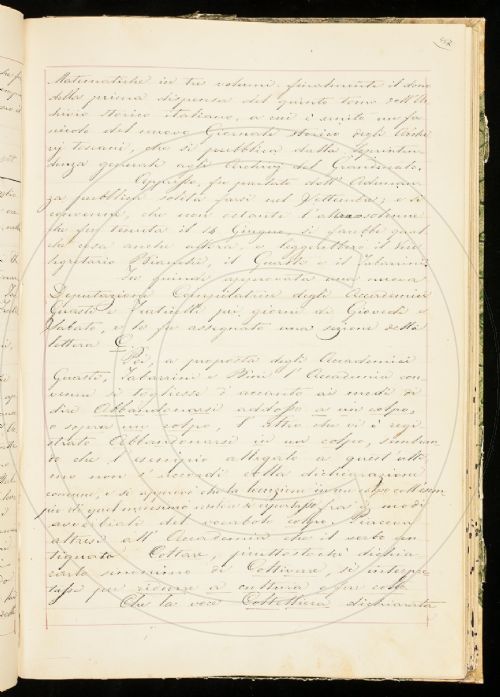 Matematiche in tre volumi: finalmente il dono
della prima dispensa del quinto tomo dell'Ar
chivio storico italiano, a cui è unito un fa
scicolo del nuovo Giornale storico degli Archi
vj toscani, che si pubblica dalla Soprinten
denza generale agli Archivj del Granducato.
Appresso, fu parlato dell'Adunan
za pubblica solita farsi nel Settembre; e si
convenne, che non ostante l'altra solenne
da fu tenuta il 14 Giugno, si facesse qual
che cosa anche allora, e leggerebbero il Vice
segretario Bianchi, il Guasti e il Tabarrini.
Fu quindi approvata una nuova
Deputazione Compilatrice degli Accademici
Guasti e Fraticelli pei giorni di Giovedì e
Sabato, e le fu assegnata una sezione della
lettera C.
Poi, a proposta degli Accademici
Guasti, Tabarrini e Bini l'Accademia con
venne si togliesse d'accanto ai modi di
dire Abbandonarsi addosso a un colpo,
o sopra un colpo, l'altro che vi è regi
strato Abbandonarsi in un colpo, sembran
do che l'esempio allegato a quest'ulti
mo non s'accordi colla dichiarazione
comune, e si approvò che la locuzione in un colpo coll'esem
pio di quel medesimo verbo si riportasse fra i modi
avverbiali del vocabolo colpo. Piacque
altresì all'Accademia che il verbo an
tiquato Coltare, piuttosto che dichia
rarlo sinonimo di Coltivare, si interpe
trasse per ridurre a cultura
Che la voce Collettura dichiarata